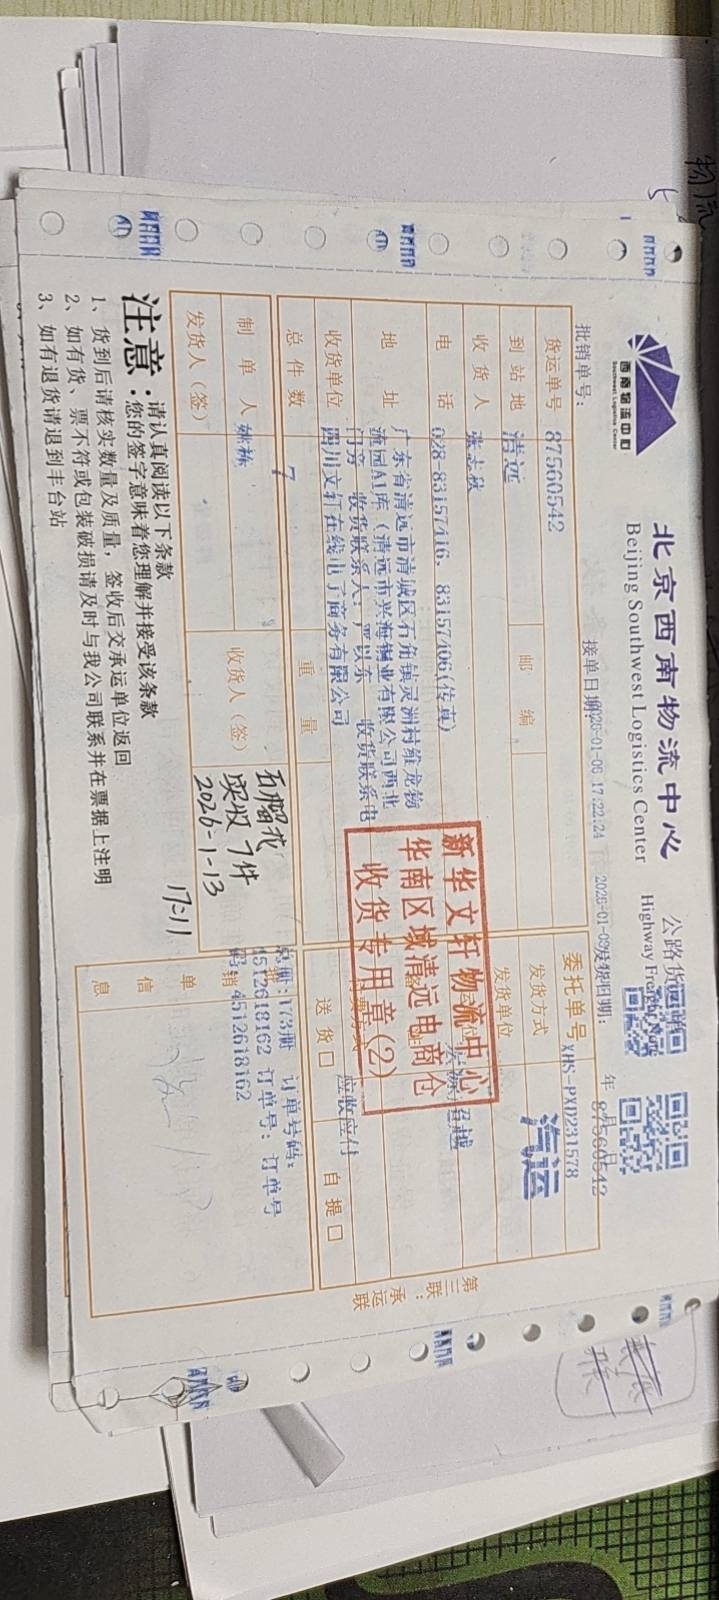 西南物流中心
Southwest Logistics Center
北京西南物流中心
Beijing Southwest Logistics Center
公路货运
批销单号：
接单日期：2026-01-06 17:22:24
发货日期：
年 月 日
87560542
货运单号 87560542
委托单号 XHS-PXD231578
到站地 清远
邮编
发货方式 汽运
收货人 张志秋
发货单位
电话 028-83157416、83157406(传真)
地址 广东省清远市清城区石角镇灵洲村维龙物
流园A1库（清远市兴海铜业有限公司西北
门旁 收货联系人：严以东 收货联系电
收货单位 四川文轩在线电子商务有限公司
应收应付
总件数 7
重量
送货□
自提□
制单人 姚栋
收货人（签） 石榴花
实收7件
2026-1-13
17:11
发货人（签）
总册：173册 订单号码：
4512618162 订单号：订单号
码：4512618162
销单信息
新华文轩物流中心
华南区域清远电商仓
收货专用章(2)
第三联：承运联
注意：请认真阅读以下条款
您的签字意味着您理解并接受该条款
1、货到后请核实数量及质量，签收后交承运单位返回
2、如有货、票不符或包装破损请及时与我公司联系并在票据上注明
3、如有退货请退到丰台站
物流